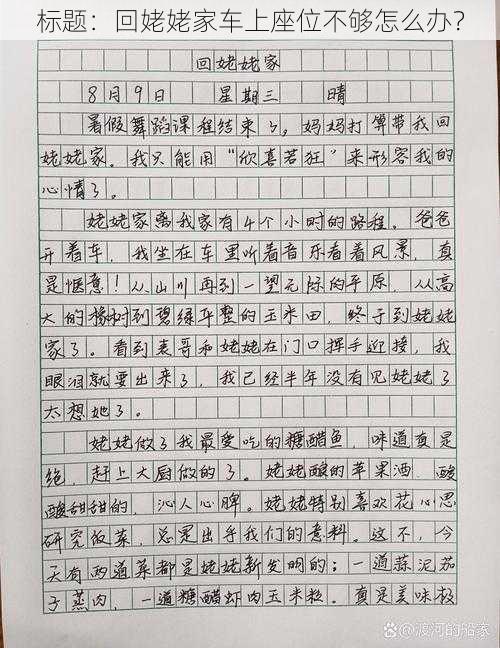 标题：回姥姥家车上座位不够怎么办？
回姥姥家
8月9日 星期三 晴
暑假舞蹈课程结束了，妈妈打算带我回
姥姥家。我只能用“欣喜若狂”来形容我的
心情了。
姥姥家离我家有4个小时的路程。爸爸
开着车，我坐在车里听着音乐看着风景，真
是惬意！从山川再到一望无际的平原，从高
大的杨树到碧绿平整的玉米田，终于到姥姥
家了。看到表哥和姥姥在门口挥手迎接，我
眼泪就要出来了，我已经半年没有见姥姥了
太想她了。
姥姥做了我最爱吃的糖醋鱼，味道真是
绝，赶上大厨做的了。姥姥酿的苹果酒，酸
酸甜甜的，沁人心脾。姥姥特别喜欢花心思
研究饭菜，总是出乎我们的意料。这不，今
天有两道菜都是姥姥新发明的；一道蒜泥茄
子蒸肉，一道糖醋虾肉玉米粒。真是美味极
@渡河的船家